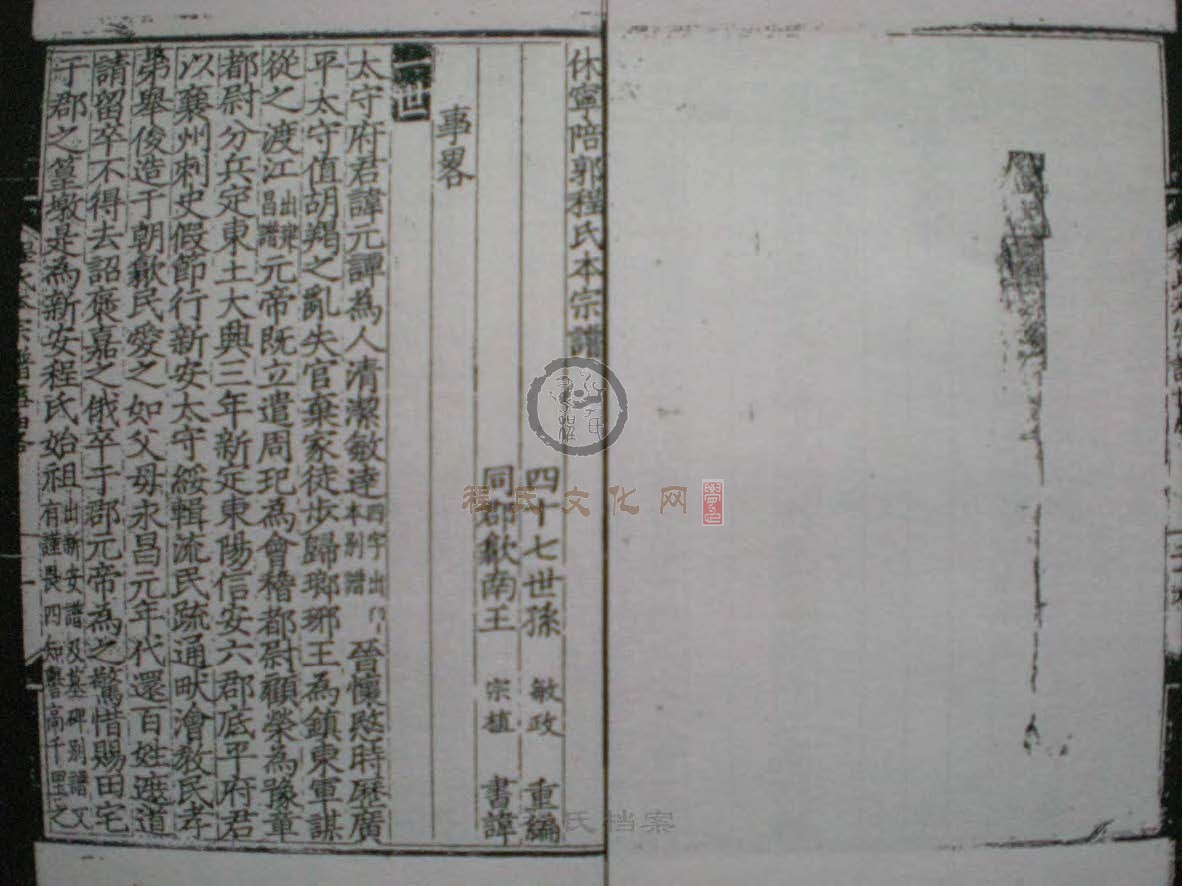 休寧陪郭程氏本宗譜
四十七世孫 敏政 重編
同郡歙南王 宗植 書諱
事畧
一世
太守府君諱元譚為人清潔敏達四字出本別譜晉懷愍時歷廣
平太守值胡羯之亂失官棄家徒步歸瑯琊王為鎮東軍謀
從之渡江出東昌譜元帝既立遣周玘為會稽都尉顧榮為豫章
都尉分兵定東土大興三年新定東陽信安六郡底平府君
以襄州刺史假節行新安太守綏輯流民疏通畎澮教民孝
弟舉俊造于朝歙民愛之如父毋永昌元年代還百姓遮道
請留卒不得去詔褒嘉之俄卒于郡元帝為之驚惜賜田宅
于郡之篁墩是為新安程氏始祖出新安譜及墓碑別譜又有謹畏四知譽高千里之
程氏文化网
氏档案